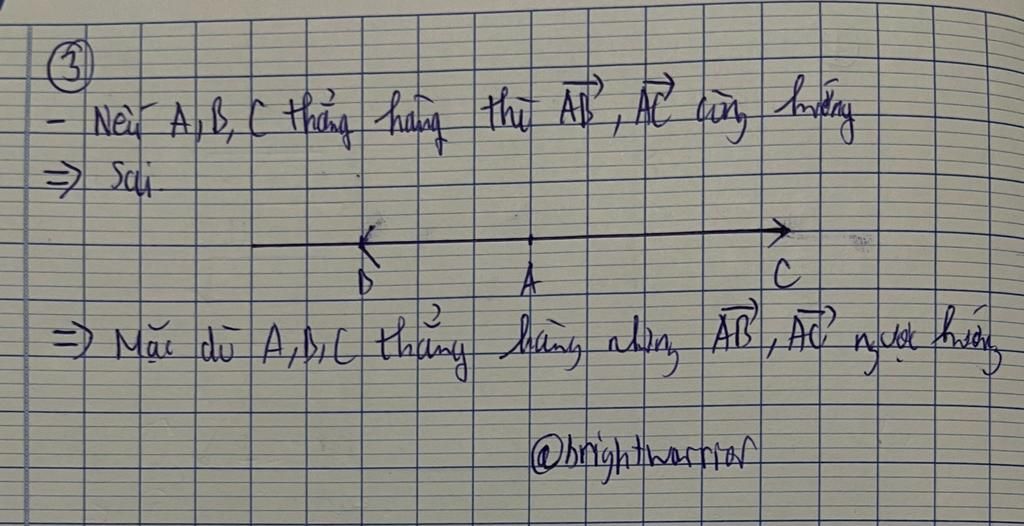 ③
- Nếu A, B, C thẳng hàng thì AB, AC cùng hướng
=> Sai.
B A C
=> Mặc dù A, B, C thẳng hàng nhưng AB, AC ngược hướng
@brightwarrior